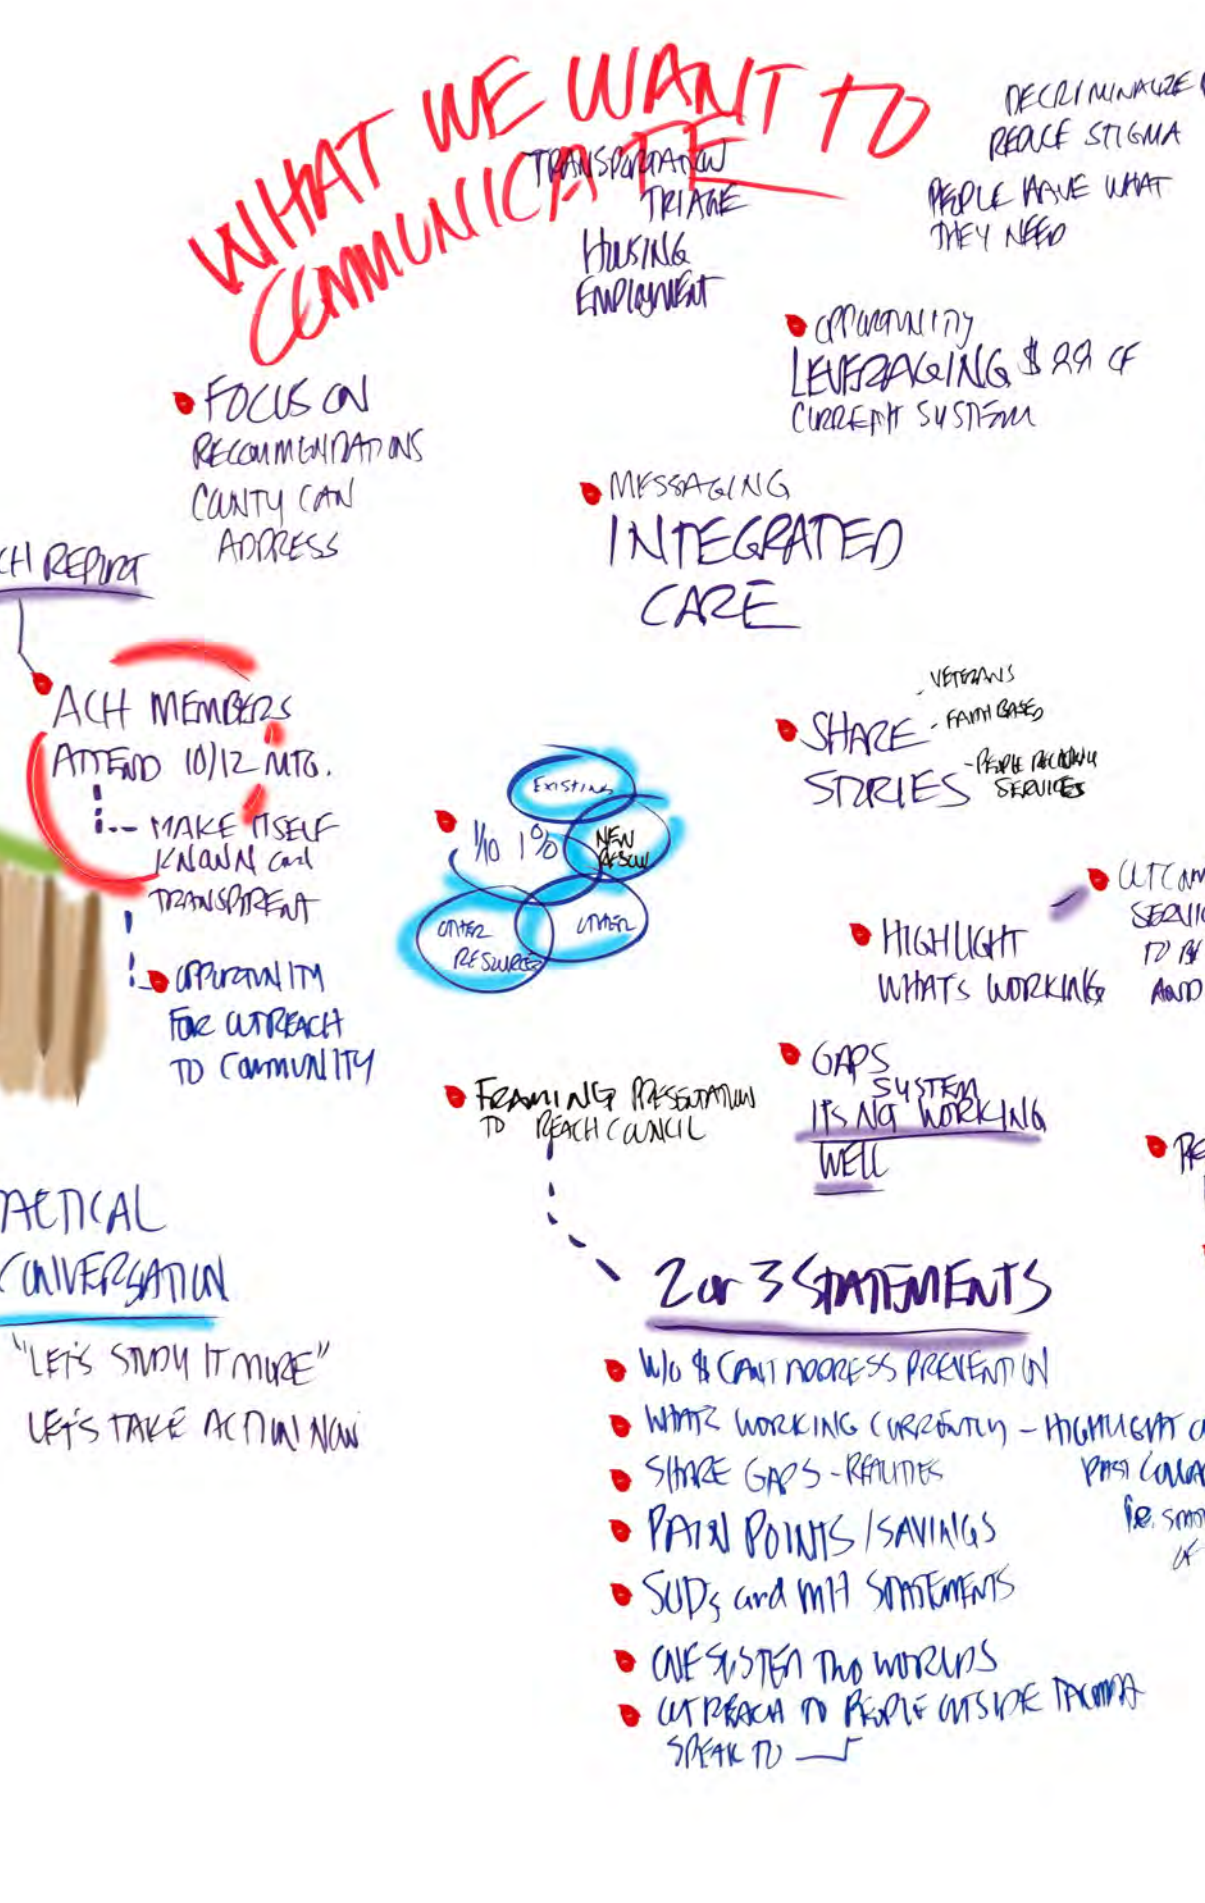 WHAT WE WANT TO
COMMUNICATE
TRANSPORTATION
TRIAGE
HOUSING
EMPLOYMENT
DECRIMINALIZE
REDUCE STIGMA
PEOPLE HAVE WHAT
THEY NEED
OPPORTUNITY
LEVERAGING $ OF
CURRENT SYSTEM
FOCUS ON
RECOMMENDATIONS
COUNTY CAN
ADDRESS
MESSAGING
INTEGRATED
CARE
CH REPORT
ACH MEMBERS
ATTEND 10/12 MTG.
MAKE ITSELF
KNOWN and
TRANSPARENT
OPPORTUNITY
FOR OUTREACH
TO COMMUNITY
SHARE
STORIES
- VETERANS
- FAITH BASED
- PEOPLE RECEIVING
SERVICES
1/10 1%
EXISTING
NEW
OTHER
RESOURCES
OTHER
HIGHLIGHT
WHATS WORKING
OUTCOM
SERVIC
TO
AND
FRAMING PRESENTATION
TO REACH COUNCIL
GAPS
SYSTEM
IT'S NOT WORKING
WELL
RE
ACTICAL
CONVERSATION
"LET'S STUDY IT MORE"
LET'S TAKE ACTION NOW
2 or 3 STATEMENTS
W/O $ CANT ADDRESS PREVENTION
WHATS WORKING CURRENTLY - HIGHLIGHT
PAST COLLA
i.e.
OF
SHARE GAPS - REALITIES
PAIN POINTS / SAVINGS
SUDs and MH STATEMENTS
ONE SYSTEM TWO WORLDS
OUTREACH TO PEOPLE OUTSIDE TACOMA
SPEAK TO